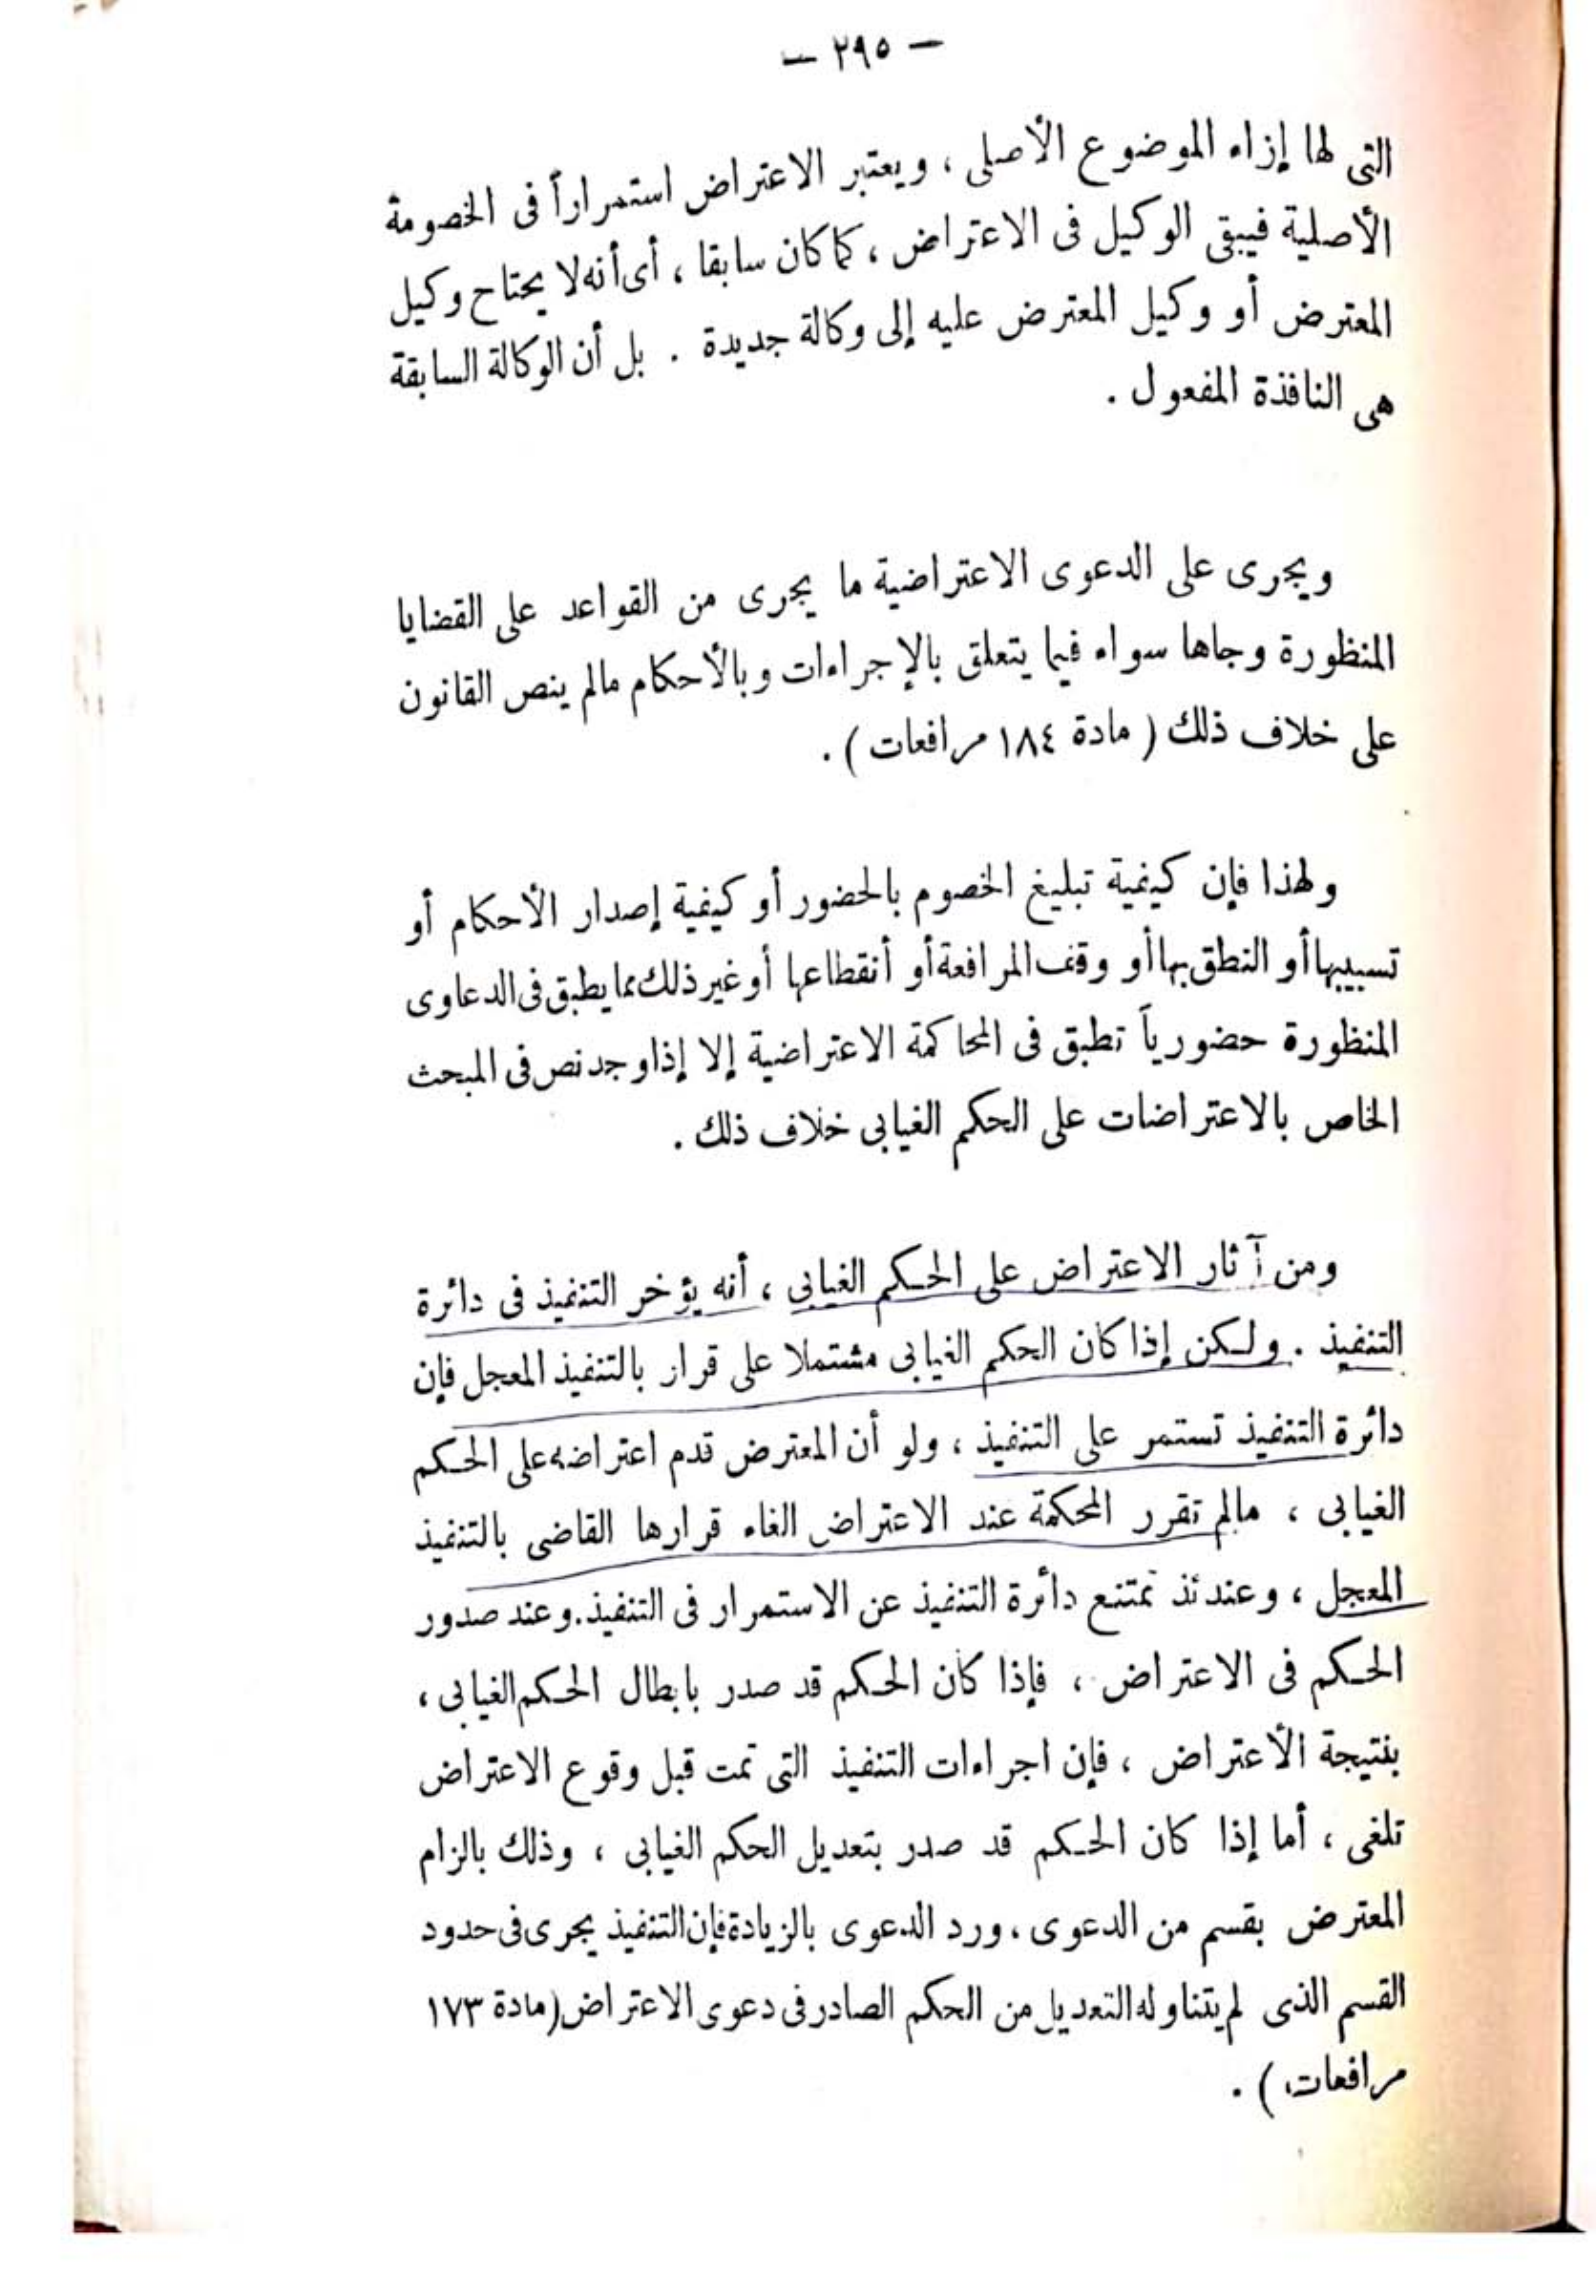 — ٢٩٥ —
التى لها إزاء الموضوع الأصلى ، ويعتبر الاعتراض استمراراً فى الخصومة
الأصلية فيبقى الوكيل فى الاعتراض ، كما كان سابقا ، أى أنه لا يحتاح وكيل
المعترض أو وكيل المعترض عليه إلى وكالة جديدة . بل أن الوكالة السابقة
هى النافذة المفعول .
ويجرى على الدعوى الاعتراضية ما يجرى من القواعد على القضايا
المنظورة وجاها سواء فيما يتعلق بالإجراءات وبالأحكام مالم ينص القانون
على خلاف ذلك ( مادة ١٨٤ مرافعات ) .
ولهذا فإن كيفية تبليغ الخصوم بالحضور أو كيفية إصدار الأحكام أو
تسبيبها أو النطق بها أو وقف المرافعة أو أنقطاعها أو غير ذلك مما يطبق فى الدعاوى
المنظورة حضورياً تطبق فى المحاكمة الاعتراضية إلا إذا وجد نص فى المبحث
الخاص بالاعتراضات على الحكم الغيابى خلاف ذلك .
ومن آثار الاعتراض على الحكم الغيابى ، أنه يؤخر التنفيذ فى دائرة
التنفيذ . ولكن إذا كان الحكم الغيابى مشتملا على قرار بالتنفيذ المعجل فإن
دائرة التنفيذ تستمر على التنفيذ ، ولو أن المعترض قدم اعتراضه على الحكم
الغيابى ، مالم تقرر المحكمة عند الاعتراض الغاء قرارها القاضى بالتنفيذ
المعجل ، وعندئذ تمتنع دائرة التنفيذ عن الاستمرار فى التنفيذ . وعند صدور
الحكم فى الاعتراض ، فإذا كان الحكم قد صدر بابطال الحكم الغيابى ،
بنتيجة الأعتراض ، فإن اجراءات التنفيذ التى تمت قبل وقوع الاعتراض
تلغى ، أما إذا كان الحكم قد صدر بتعديل الحكم الغيابى ، وذلك بالزام
المعترض بقسم من الدعوى ، ورد الدعوى بالزيادة فإن التنفيذ يجرى فى حدود
القسم الذى لم يتناوله التعديل من الحكم الصادر فى دعوى الاعتراض (مادة ١٧٣
مرافعات ) .